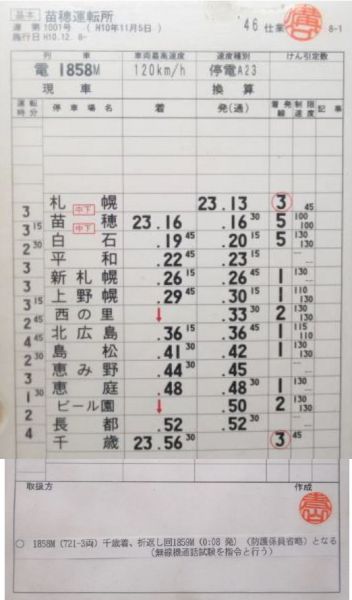 基本 苗穂運転所
運 第 1001号 (H10年11月5日)
施行日 H10.12. 8-
'46 仕業
8-1
列車 車両最高速度 速度種別 けん引定数
電 1858M 120km/h 停電A23
現車 換算
運転時分 停車場名 着 発(通) 着発線 制限速度 記事
札幌 23.13 ③ 45
3
中下
苗穂 23.16 .16 30 5 100 100
3 15
中下
白石 .19 45 .20 15 5 130 130
2 30
平和 .22 45 .23 15
3
新札幌 .26 15 .26 45 1 130
3
上野幌 .29 45 .30 15 1 110 130
3 15
西の里 ↓ .33 30 2 130 130
2 45
北広島 .36 15 .36 45 1 115 110
4 45
島松 .41 30 .42 1 130 130
2 30
恵み野 .44 30 .45
3
恵庭 .48 .48 30 1 130
1 30
ビール園 ↓ .50 2 130 130
2
長都 .52 .52 30
4
千歳 23.56 30 ③ 45
取扱方 作成
○ 1858M (721-3両) 千歳着、折返し回1859M (0:08 発) (防護係員省略) となる
(無線機通話試験を指令と行う)